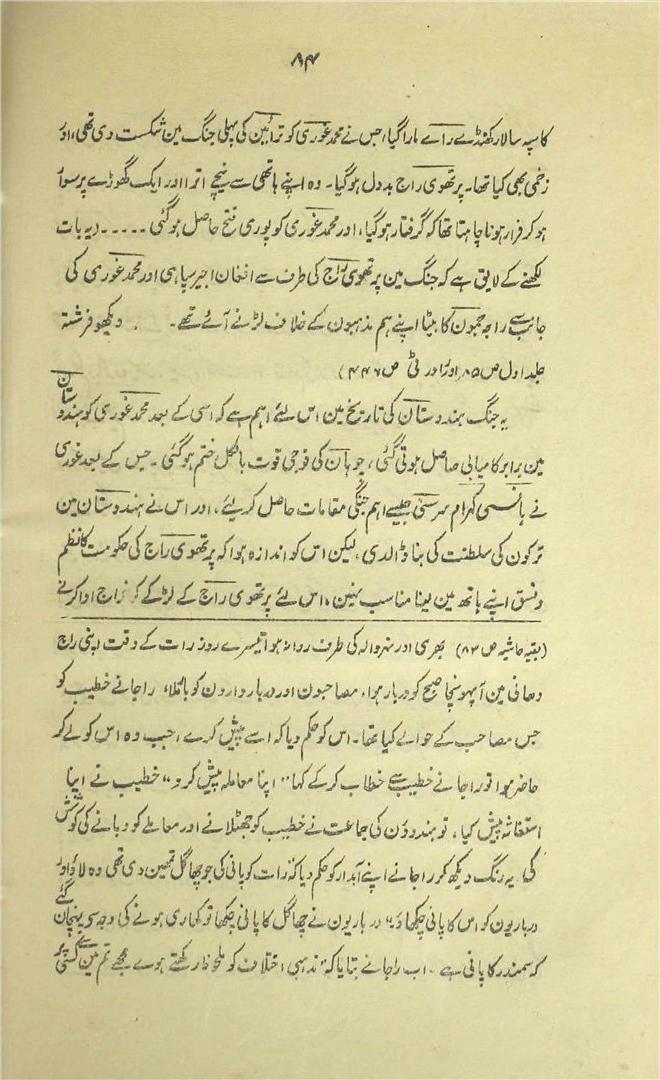 ۸۴
کا سپہ سالار کھنڈے راے مارا گیا، جس نے محمد غوری کو ترائین کی پہلی جنگ مین شکست دی تھی، اور
زخمی بھی کیا تھا۔ پرتھوی راج بددل ہوگیا۔ وہ اپنے ہاتھی سے نیچے اترا اور ایک گھوڑے پر سوار
ہو کر فرار ہونا چاہتا تھا کہ گرفتار ہوگیا، اور محمد غوری کو پوری فتح حاصل ہوگئی ..... یہ بات
لکھنے کے لایق ہے کہ جنگ مین پرتھوی راج کی طرف سے افغان اجیر سپاہی اور محمد غوری کی
جانب سے راجہ جمون کا بیٹا اپنے ہم مذہبون کے خلاف لڑنے آئے تھے۔ دیکھو فرشتہ
جلد اول ص ۵۸، اور اورٹی ص ۴۴۶)
یہ جنگ ہندوستان کی تاریخ مین اس لئے اہم ہے کہ اسی کے بعد محمد غوری کو ہندوستان
مین برابر کامیابی حاصل ہوتی گئی، چوہان کی فوجی قوت بالکل ختم ہوگئی۔ جس کے بعد غوری
نے ہانسی کہرام سرستی جیسے اہم جنگی مقامات حاصل کر لیئے، اور اس نے ہندوستان مین
ترکون کی سلطنت کی بنا ڈالدی، لیکن اس کو اندازہ ہوا کہ پرتھوی راج کی حکومت کا نظم
ونسق اپنے ہاتھ مین لینا مناسب نہین، اس لئے پرتھوی راج کے لڑکے کو خراج ادا کرنے
(بقیہ حاشیہ ص ۸۳) بھری اور نہروالہ کی طرف روانہ ہوا تیسرے روز رات کے وقت اپنی راج
دھانی مین آپہونچا صبح کو دربار ہوا، مصاحبون اور دربارداردن کو بلا، راجا نے خطیب کو
جس مصاحب کے حوالے کیا تھا۔ اس کو حکم دیا کہ اسے پیش کرے، جب وہ اس کو لے کر
حاضر ہوا تو راجا نے خطیب سے خطاب کرکے کہا "اپنا معاملہ پیش کرو" خطیب نے اپنا
استغاثہ پیش کیا، تو ہندوؤن کی جماعت نے خطیب کو جھٹلانے اور معاملے کو دبانے کی کوشش
کی یہ رنگ دیکھ کر راجا نے اپنے آبدار کو حکم دیا کہ رات کو پانی کی جو چھاگل تمھین دی تھی وہ لاؤ اور
درباریون کو اس کا پانی چکھاؤ" درباریون نے چھاگل کا پانی چکھا تو کھاری ہونے کی وجہ سے پہچان گئے
کہ سمندر کا پانی ہے۔ اب راجا نے بتایا کہ "مذہبی اختلاف کو ملحوظ رکھتے ہوے مجھے تم مین سے کسی پر